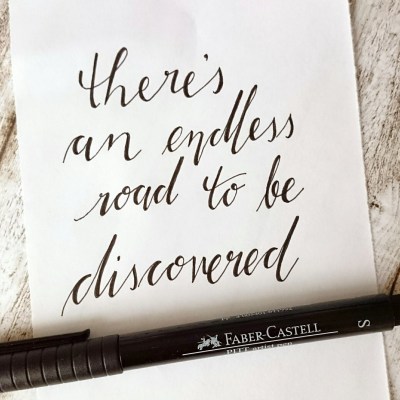 there's
an endless
road to be
discovered
FABER-CASTELL
PITT artist pen
S